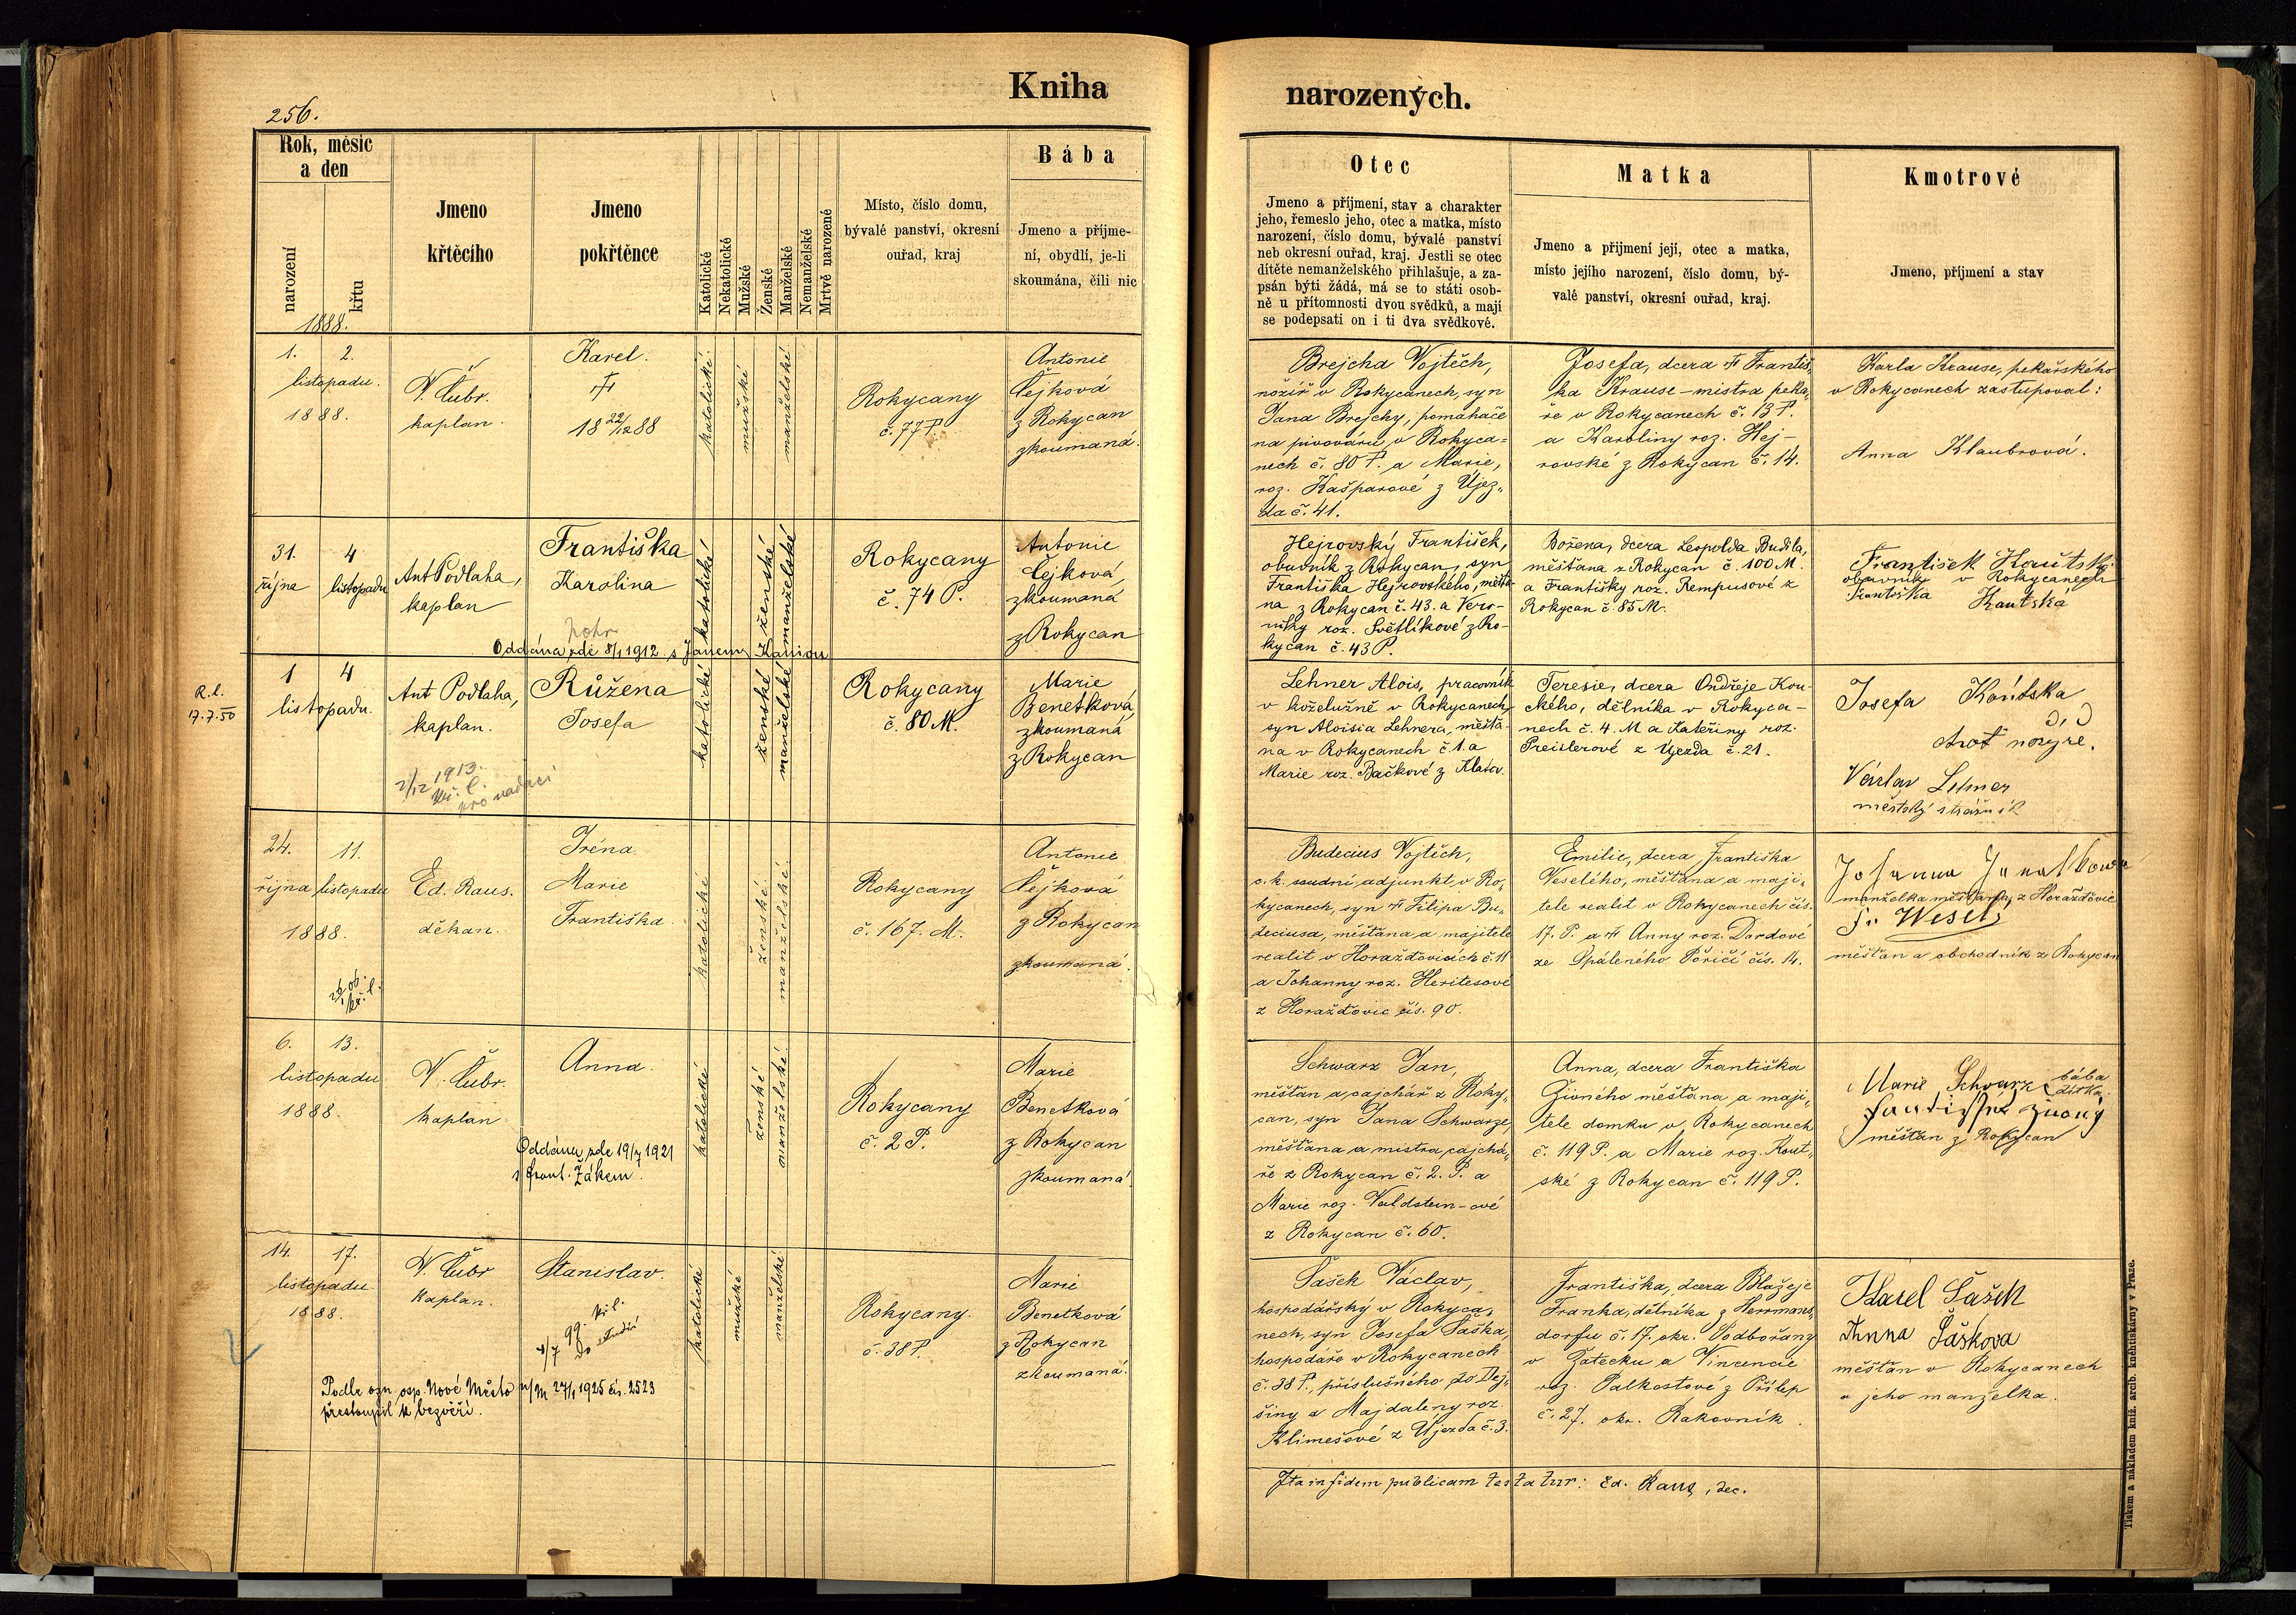 Kniha
narozených.
256.
Rok, měsíc
a den
narození
křtu
Jmeno
křtěcího
Jmeno
pokřtěnce
Katolické
Nekatolické
Mužské
Ženské
Manželské
Nemanželské
Mrtvě narozené
Místo, číslo domu,
bývalé panství, okresní
ouřad, kraj
Bába
Jmeno a příjme-
ní, obydlí, je-li
skoumána, čili nic
Otec
Jmeno a příjmení, stav a charakter
jeho, řemeslo jeho, otec a matka, místo
narození, číslo domu, bývalé panství
neb okresní ouřad, kraj. Jestli se otec
dítěte nemanželského přihlašuje, a za-
psán býti žádá, má se to státi osob-
ně u přítomnosti dvou svědků, a mají
se podepsati on i ti dva svědkové.
Matka
Jmeno a přijmení její, otec a matka,
místo jejího narození, číslo domu, bý-
valé panství, okresní ouřad, kraj.
Kmotrové
Jmeno, příjmení a stav
1888.
1. 2.
listopadu.
1888.
V. Čubr.
kaplan.
Karel.
†
18 22/12 88
katolické.
mužské
manželské
Rokycany
č. 77 P.
Antonie
Čejková
z Rokycan
zkoumaná.
Brejcha Vojtěch,
nožíř v Rokycanech, syn
Jana Brejchy, pomahače
na pivováru v Rokyca=
nech č. 80 P. a Marie,
roz. Kašparové z Újez„
da č. 41.
Josefa, dcera † Františ„
ka Krause - mistra peka„
ře v Rokycanech č. 13 P.
a Karoliny roz. Hej-
rovské z Rokycan č. 14.
Karla Krause, pekařského
v Rokycanech zastupoval:
Anna Klaubrová.
31. 4
října listopadu
Ant Podlaha,
kaplan
Františka
Karolina
Oddána zde 8/1 1912 s Janem
katolické
ženské
manželské
Rokycany
č. 74 P.
Antonie
Čejková,
zkoumaná
z Rokycan
Hejrovský František,
obuvník z Rokycan, syn
Františka Hejrovského, měšťa-
na z Rokycan č. 43. a Vero-
niky roz. Světlíkové z Ro-
kycan č. 43 P.
Božena, dcera Leopolda Budila,
měšťana z Rokycan č. 100 M.
a Františky roz. Rempusové z
Rokycan č. 85 M.
František Kautský
obuvník v Rokycanech
Františka Kautská
R. l.
17.7.50
1 4
listopadu.
Ant Podlaha,
kaplan.
2/12 1913.
kř. l.
pro nadaci
Růžena
Josefa
katolické
ženské
manželské
Rokycany
č. 80 M.
Marie
Benetková,
zkoumaná
z Rokycan
Lehner Alois, pracovník
v koželužně v Rokycanech,
syn Aloisia Lehnera, měšťa-
na v Rokycanech č. 1. a
Marie roz. Bačkové z Klatov.
Teresie, dcera Ondřeje Kou-
ckého, dělníka v Rokyca-
nech č. 4. M a Kateřiny roz.
Preislerové z Újezda č. 21.
Josefa
Václav Lehner
městský strážník
24. 11.
října listopadu
1888.
Ed. Raus.
děkan.
Iréna
Marie
Františka
katolické
ženské
manželské
Rokycany
č. 167. M.
Antonie
Čejková
z Rokycan
zkoumaná.
Budecius Vojtěch,
c. k. soudní adjunkt v Ro„
kycanech, syn † Filipa Bu„
deciusa, měšťana a majitele
realit v Horažďovicích č. 11
a Johanny roz. Heritesové
z Horažďovic čís. 90.
Emilie, dcera Františka
Veselého, měšťana a maji„
tele realit v Rokycanech čís.
17. P. a † Anny roz. Dardové
ze Spáleného Poříčí čís. 14.
manželka měšťana, z Horažďovic
Fr. Wesely
měšťan a obchodník z Rokycan
6. 13.
listopadu
1888.
V. Čubr.
kaplan
Anna.
Oddána zde 19/7 1921
s Frant. Žákem.
katolické
ženské
manželské
Rokycany
č. 2 P.
Marie
Benetková
z Rokycan
zkoumaná.
Schwarz Jan,
měšťan a cajchář z Roky„
can, syn Jana Schwarze,
měšťana a mistra cajchá„
ře z Rokycan č. 2. P. a
Marie roz. Valdstein-ové
z Rokycan č. 60.
Anna, dcera Františka
Živného měšťana a maji„
tele domku v Rokycanech
č. 119 P. a Marie roz. Kout„
ské z Rokycan č. 119 P.
Marie Schvarz bába
dítka.
měšťan z Rokycan
14. 17.
listopadu
1888.
V. Čubr
kaplan.
Stanislav.
Podle ozn. osp. Nové Město n/M 27/1 1925 čís. 2523
přestoupil k bezvěří.
katolické
mužské
manželské
Rokycany.
č. 38 P.
Marie
Benetková
z Rokycan
zkoumaná.
Šašek Václav,
hospodářský v Rokyca„
nech, syn Josefa Šaška,
hospodáře v Rokycanech
č. 38 P., příslušného do Dej„
šiny a Majdaleny roz.
Klimešové z Újezda č. 3.
Františka, dcera Blažeje
Franka, dělníka z Herrmans„
dorfu č. 17, okr. Podbořany
v Žatecku a Vincencie
roz. Palkostové z Přílep
č. 27. okr. Rakovník.
Karel Šašek
Anna Šašková
měšťan v Rokycanech
a jeho manželka.
Ita in fidem publicam testatur: Ed. Raus, dec.
Tiskem a nákladem kníž. arcib. kněhtiskárny v Praze.